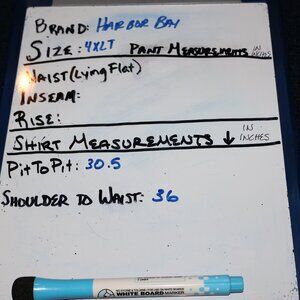 BRAND: HARBOR BAY
SIZE: 4XLT PANT MEASUREMENTS IN INCHES
WAIST (Lying Flat)
INSEAM:
RISE:
SHIRT MEASUREMENTS ↓ IN INCHES
PitToPit: 30.5
SHOULDER TO WAIST: 36
WHITE BOARD MARKER